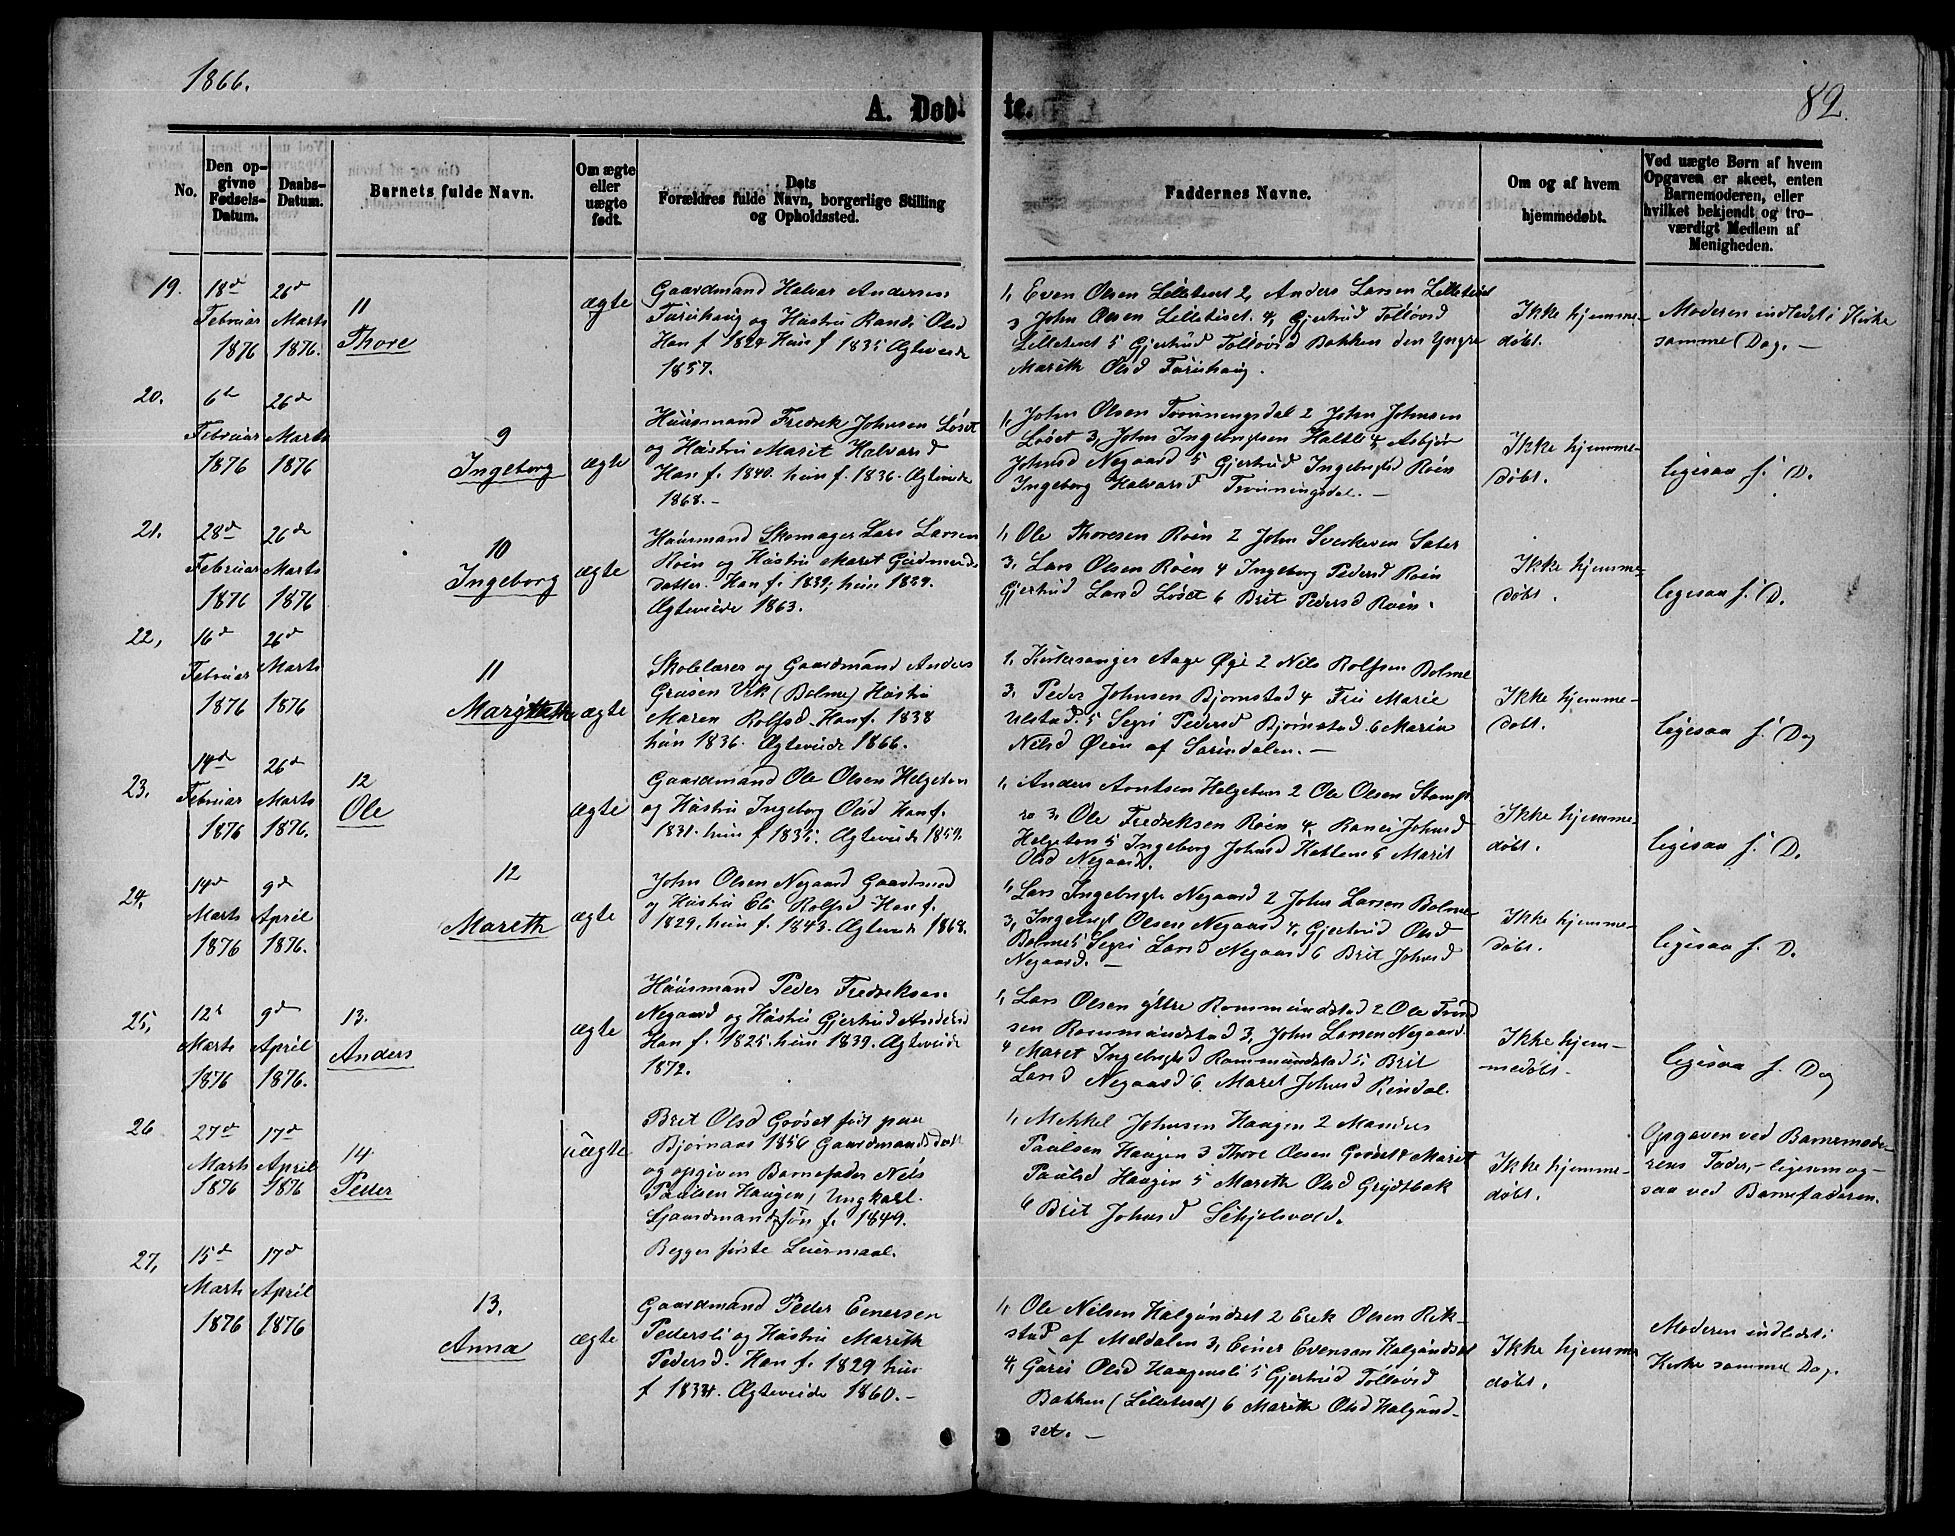 1866.
82.
A. Døb-
te.
No.
Den op-
givne
Fødsels-
Datum.
Daabs-
Datum.
Barnets fulde Navn.
Om ægte
eller
uægte
født.
Dets
Forældres fulde Navn, borgerlige Stilling
og Opholdssted.
Faddernes Navne.
Om og af hvem
hjemmedøbt.
Ved uægte Børn af hvem
Opgaven er skeet, enten
Barnemoderen, eller
hvilket bekjendt og tro-
værdigt Medlem af
Menigheden.
19.
18d
Februar
1876
26d
Marts
1876.
11
Thore
ægte
Gaardmand Halvar Andersen
Furuhaug og Hustru Randi Olsd
Han f 1824 Hun f 1835 Ægteviede
1857.
1, Even Olsen Lilletiset 2, Anders Larsen Lilletiset
3 John Olsen Lilletiset. 4, Gjertrud Tollovsd
Lilletiset 5 Gjertrud Tollovsd Bakken den Yngre
Marith Olsd Furuhaug.
Ikke hjemme-
døbt.
Moderen indledet i Kirke
samme Dag. —
20.
6te
Februar
1876
26d
Marts
1876
9
Ingeborg
ægte
Huusmand Fredrik Johnsen Løset
og Hustru Marit Halvarsd
Han f. 1840. hun f. 1836. Ægteviede
1868. —
1, John Olsen Tronningsdal 2 John Johnsen
Løset 3, John Ingebrigtsen Haltli 4, Asbjør
Johnsd Negaard 5 Gjertrud Ingebrigtsd Røen
Ingeborg Halvarsd Tronningsdal. —
Ikke hjemme-
døbt.
ligesaa s. D.
21.
28d
Februar
1876
26de
Marts
1876
10
Ingeborg
ægte
Huusmand Skomager Lars Larsen
Røen og Hustru Maret Gudmunds
datter. Han f. 1839, hun 1839.
Ægteviede 1863.
1, Ole Thoresen Røen 2 John Sverkesen Sæter
3, Lars Olsen Røen 4 Ingeborg Pedersd Røen
Gjertrud Larsd Løset 6 Brit Pedersd Røen.
Ikke hjemme-
døbt.
ligesaa s. D.
22,
16d
Februar
1876
26d
Marts
1876
11
ægte
Skolelærer og Gaardmand Anders
Vik (Bolme) Hustru
Maren Rolfsd. Han f. 1838
hun 1836. Ægteviede 1866.
1, Kirkesanger Aage Øye 2 Nils Rolfsen Bolme
3, Peder Johnsen Bjørnstad 4 Fru Marie
Ulstad. 5 Segri Pedersd Bjørnstad 6 Marin
Nilsd Øien af Surendalen. —
Ikke hjemme-
døbt.
ligesaa s. Dag
23.
14d
Februar
1876
26d
Marts
1876.
12
Ole
ægte
Gaardmand Ole Olsen Helgeton
og Hustru Ingeborg Olsd Han f.
1831. hun f 1835. Ægteviede 1859.
1, Anders Arntsen Helgeton 2 Ole Olsen
3, Ole Fredriksen Røen 4, Johnsd
Helgeton 5 Ingeborg Johnsd 6 Marit
Olsd Negaard.
Ikke hjemme-
døbt.
ligesaa s. D.
24,
14d
Marts
1876
9d
April
1876.
12
Mareth
ægte
John Olsen Negaard Gaardmd
og Hustru Eli Rolfsd Han f.
1829, hun f. 1843. Ægteviede 1868.
1, Lars Ingebrigts Negaard 2 John Larsen Bolme
3, Ingebrigt Olsen Negaard 4, Gjertrud Olsd
Bolme 5 Segri Larsd Negaard 6 Brit Johnsd
Negaard. —
Ikke hjemme-
døbt.
ligesaa s. D.
25,
12t
Marts
1876
9d
April
1876.
13.
Anders
ægte
Huusmand Peder Fredriksen
Negaard og Hustru Gjertrud Andersd
Han f. 1825. hun 1839. Ægteviede
1872.
1, Lars Olsen yttre Rommundstad 2 Ole
sen Rommundstad 3, John Larsen Negaard.
4 Maret Ingebrigtsd Rommundstad 5, Brit
Larsd Negaard 6. Maret Johnsd Rindal.
Ikke hjem-
medøbt.
ligesaa s. Dag
26
27d
Marts
1876
17d
April
1876
14.
Peder
uægte
Brit Olsd Grøset født paa
Bjørnaas 1856 Gaardmandsdatt
og opgiven Barnefader Nils
Paulsen Haugen, Ungkarl.
Gaardmandssøn f. 1849.
Begges første Leiermaal.
1, Mekkel Johnsen Haugen 2 Manders
Paulsen Haugen 3 Thore Olsen Grøset 4 Marit
Paulsd Haugen 5 Mareth Olsd
6 Brit Johnsd
Ikke hjemme-
døbt.
Opgaven ved Barnemode-
rens Fader, — ligesmog-
saa ved Barnefaderen.
27,
15d
Marts
1876
17d
April
1876
13.
Anna
ægte
Gaardmand Peder Einersen
Pedersli og Hustru Marith
Pedersd. Han f. 1829 hun
f 1834. Ægteviede 1860. —
1, Ole Nilsen Halgundset 2 Erik Olsen Rik-
stad af Meldalen 3, Einer Evensen Halgundset
4, Guri Olsd Haugensli 5 Gjertrud Tollovsd
Bakken (Lilletiset) 6 Marith Olsd Halgund-
set. —
Ikke hjemme
døbt.
Moderen indledet i
Kirke samme Dag.